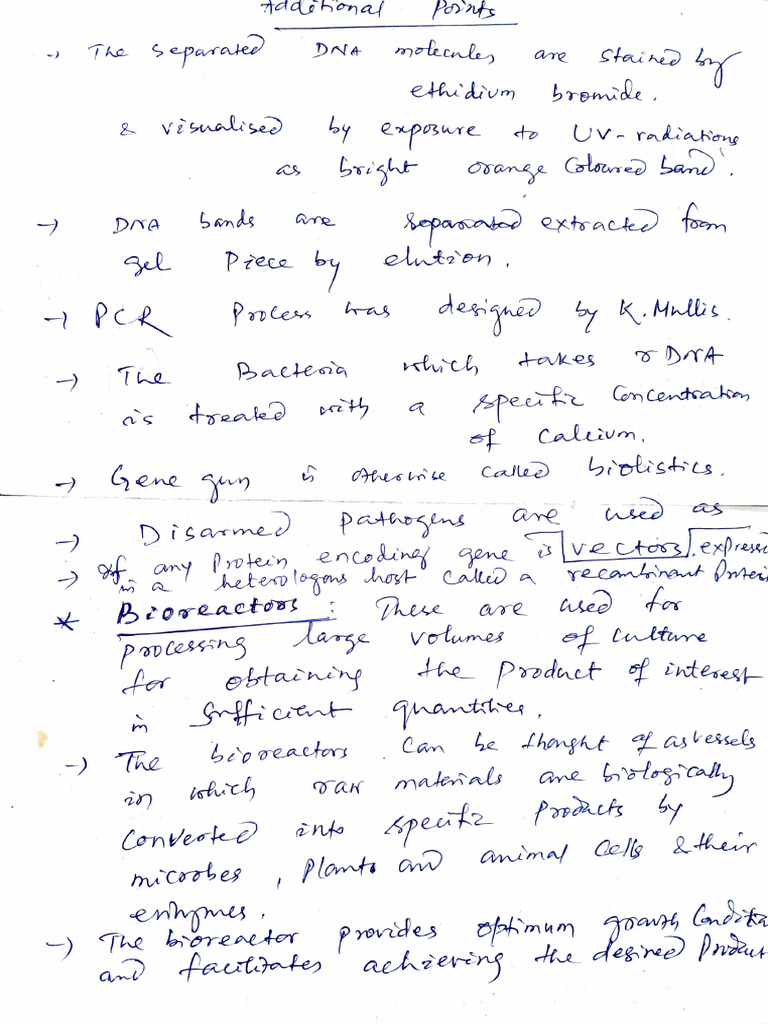 Additional Points
→ The separated DNA molecules are stained by
ethidium bromide.
& visualised by exposure to UV-radiations
as bright orange coloured band.
→ DNA bands are separated extracted from
gel Piece by elution.
→ PCR Process was designed by K. Mullis.
→ The Bacteria which takes rDNA
is treated with a specific concentration
of calcium.
→ Gene gun is otherwise called biolistics.
→ Disarmed pathogens are used as
vectors.
→ If any Protein encoding gene is expresse
in a heterologous host called a recombinant Protei
* Bioreactors : These are used for
processing large volumes of culture
for obtaining the product of interest
in sufficient quantities.
→ The bioreactors can be thought of as vessels
in which raw materials are biologically
converted into specific products by
microbes, plants and animal cells & their
enzymes.
→ The bioreactor provides optimum growth conditio
and facilitates achieving the desired Product